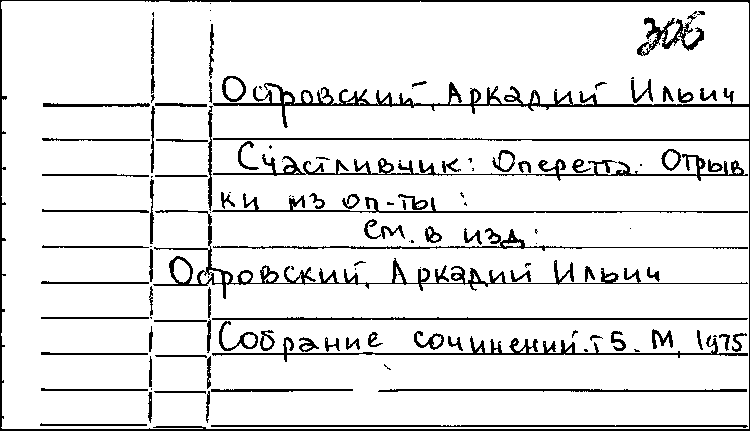 306
Островский, Аркадий Ильич
Счастливчик: Оперетта. Отрыв
ки из оп-ты :
см. в изд.:
Островский, Аркадий Ильич
Собрание сочинений. т 5. М, 1975